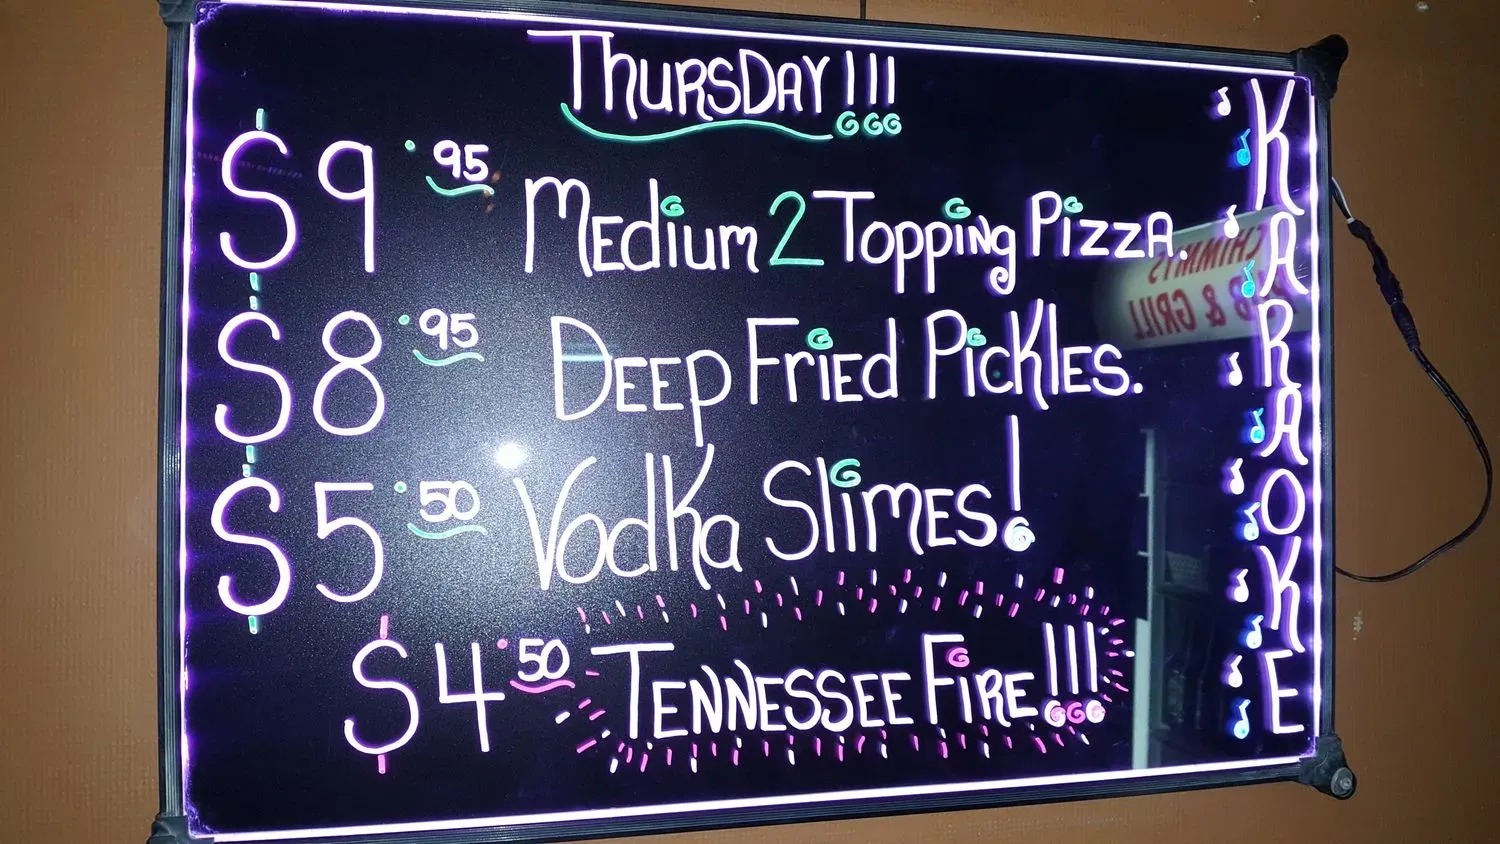 THURSDAY!!!
$9.95 MEdium 2 Topping PizzA.
$8.95 DEEp FriEd PicKlES.
$5.50 VodKa SlimES!
$4.50 TENNESSEE FiRE!!!
KARAOKE
CHIMMY'S
PUB & GRILL